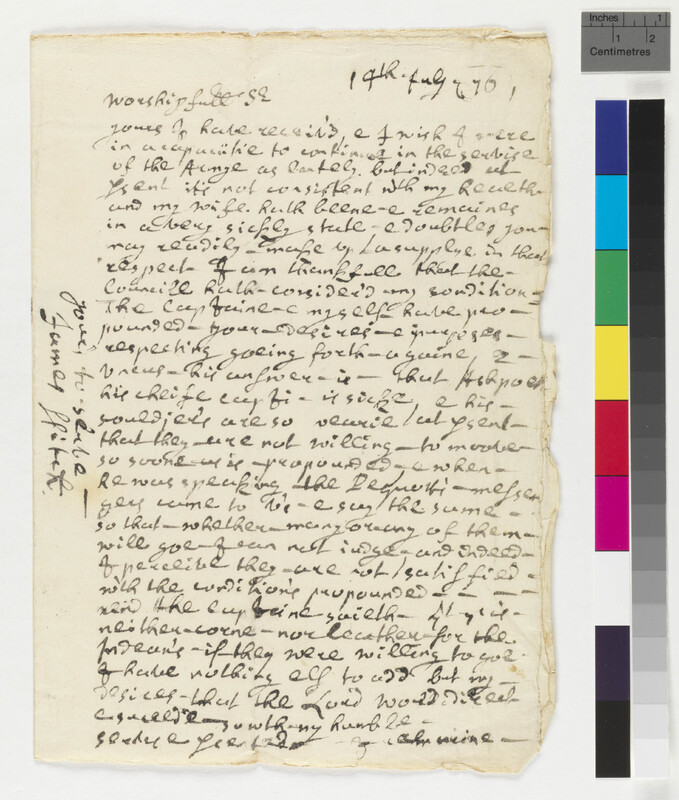 14th July 76,
Worshipfull Sr
yours I have receiv'd, & I wish I were
in a capacitie to continue in the service
of the Armye as lately. but indeed at
psent it's not consistent wth my health
and my wife. hath beene & remaines
in a very sickly state & doubtles you
may readily make up a supplye in that
respect I am thankfull that the
Councill hath consider'd my condition
The Captaine & myself have pro
pounded your desires & purposes
respecting goeing forth againe, to
Uncas his answer is that Ashpoet
his cheife capt: is sicke, & his
souldjers are so wearie at psent
that they are not willing to moove
so soone as is propounded & when
he was speaking the Pequott messen
gers came to Us & say the same
so that whether many or any of them
will goe I can not judge and indeed
I perceive they are not satisfied
with the conditions propounded
and the Captaine saith ther is
neither corne nor leather for the
Indeans if they were willing to goe
I have nothing els to add but my
desires that the Lord would direct
& succede so wth my humble
servce psented I remaine
yours to serve
James Ffitch
Inches 1
1 2
Centimetres